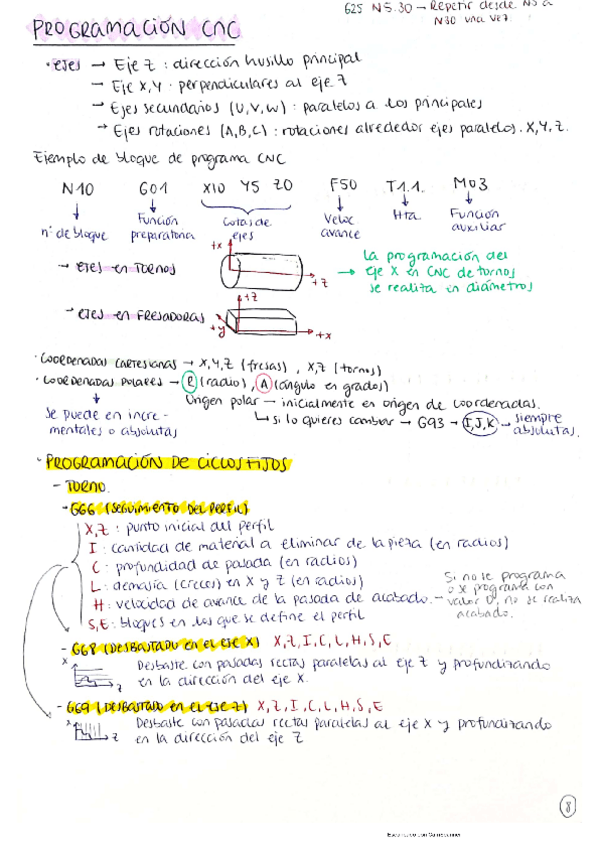 PROGRAMACIÓN CNC
G25 N5.30 → Repetir desde N5 a
N30 una vez.
· EJES → Eje Z : dirección husillo principal
→ Eje X,Y · perpendiculares al eje Z
→ Ejes secundarios (U,V,W) : paralelos a los principales
→ Ejes rotaciones (A,B,C) : rotaciones alrededor ejes paralelos. X,Y,Z.
Ejemplo de bloque de programa CNC
N10 G01 X10 Y5 Z0 F50 T1.1. M03
nº de bloque
Función preparatoria
Cotas de ejes
Veloc avance
Hta.
Función auxiliar
→ EJES en TORNOS
+x
+z
→ La programación del
eje X en CNC de tornos
se realiza en diámetros
→ EJES en FRESADORAS
+z
+y
+x
· COORDENADAS CARTESIANAS → X,Y,Z (fresas) , X,Z (tornos)
· COORDENADAS POLARES → R (radio) , A (ángulo en grados)
Origen polar → inicialmente en origen de coordenadas.
↳ si lo quieres cambiar → G93 → I,J,K → siempre
absolutas.
Se puede en incre-
mentales o absolutas
· PROGRAMACIÓN DE CICLOS FIJOS
- TORNO.
- G66 (SEGUIMIENTO DEL PERFIL)
X,Z : punto inicial del perfil
I : cantidad de material a eliminar de la pieza (en radios)
C : profundidad de pasada (en radios)
L : demasía (creces) en X y Z (en radios)
H : velocidad de avance de la pasada de acabado. → Si no se programa
o x programa con
valor 0, no se realiza
acabado.
S,E : bloques en los que se define el perfil
- G68 (DESBASTADO EN EL EJE X) X,Z,I,C,L,H,S,E
x
z
Desbaste con pasadas rectas paralelas al eje Z y profundizando
en la dirección del eje X.
- G69 (DESBASTADO EN EL EJE Z) X,Z,I,C,L,H,S,E
x
z
Desbaste con pasadas rectas paralelas al eje X y profundizando
en la dirección del eje Z
8